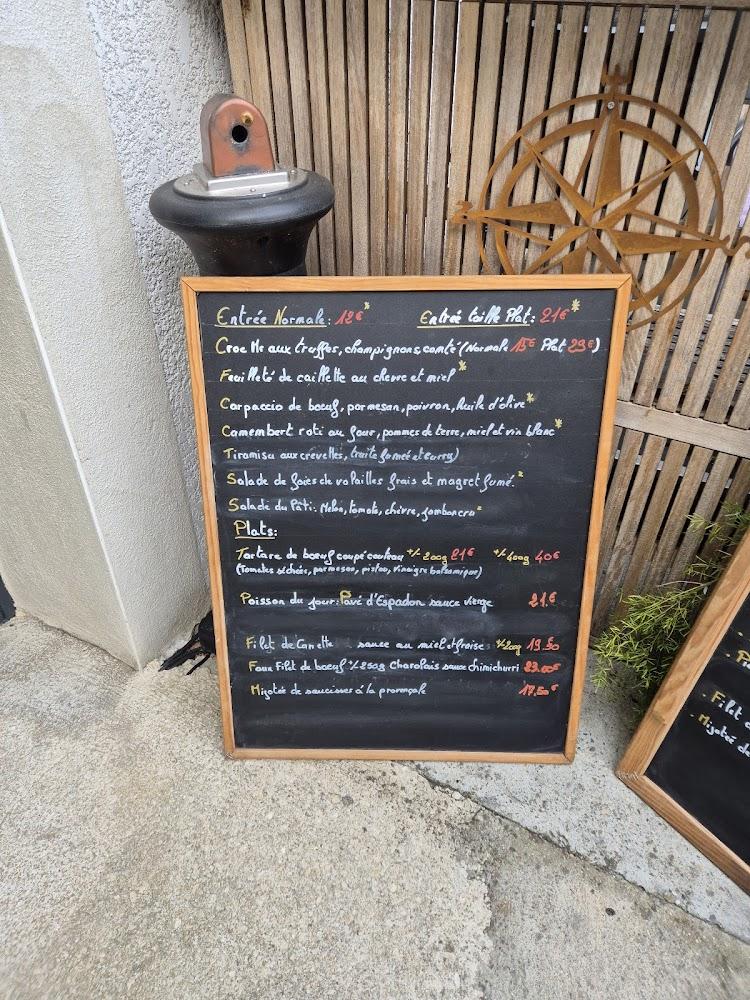 Entrée Normale: 12€* Entrée taille Plat: 21€*
Croc Mr aux truffes, champignons, comté (Normale 15€ Plat 29€)
Feuilleté de caillette au chevre et miel*
Carpaccio de bœuf, parmesan, poivron, huile d'olive*
Camembert roti au four, pommes de terre, miel et vin blanc*
Tiramisu aux crevettes, truite fumée et curry)
Salade de foies de volailles frais et magret fumé.*
Salade du Pâti: Melon, tomate, chèvre, jambon cru*
Plats:
Tartare de bœuf coupé couteau +/- 200g 21€ +/- 400g 40€
(Tomates séchées, parmesan, pistou, vinaigre balsamique)
Poisson du jour: Pavé d'Espadon sauce vierge 21€
Filet de Canette sauce au miel et fraise +/- 200g 19.50
Faux Filet de bœuf +/- 250g Charolais sauce chimichurri 23.00€
Mijotée de saucisses à la provençale 17,50€
. Filet d
. Mijotée de